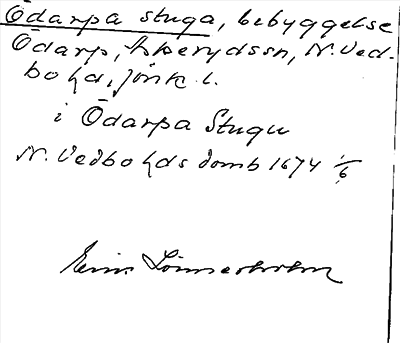 Ödarpa stuga, bebyggelse
Ödarp, Asperydssn, N. Ved-
bo hd, Jönk. l.
i Ödarpa Stugu
N. Vedbo hds domb 1674 1/6